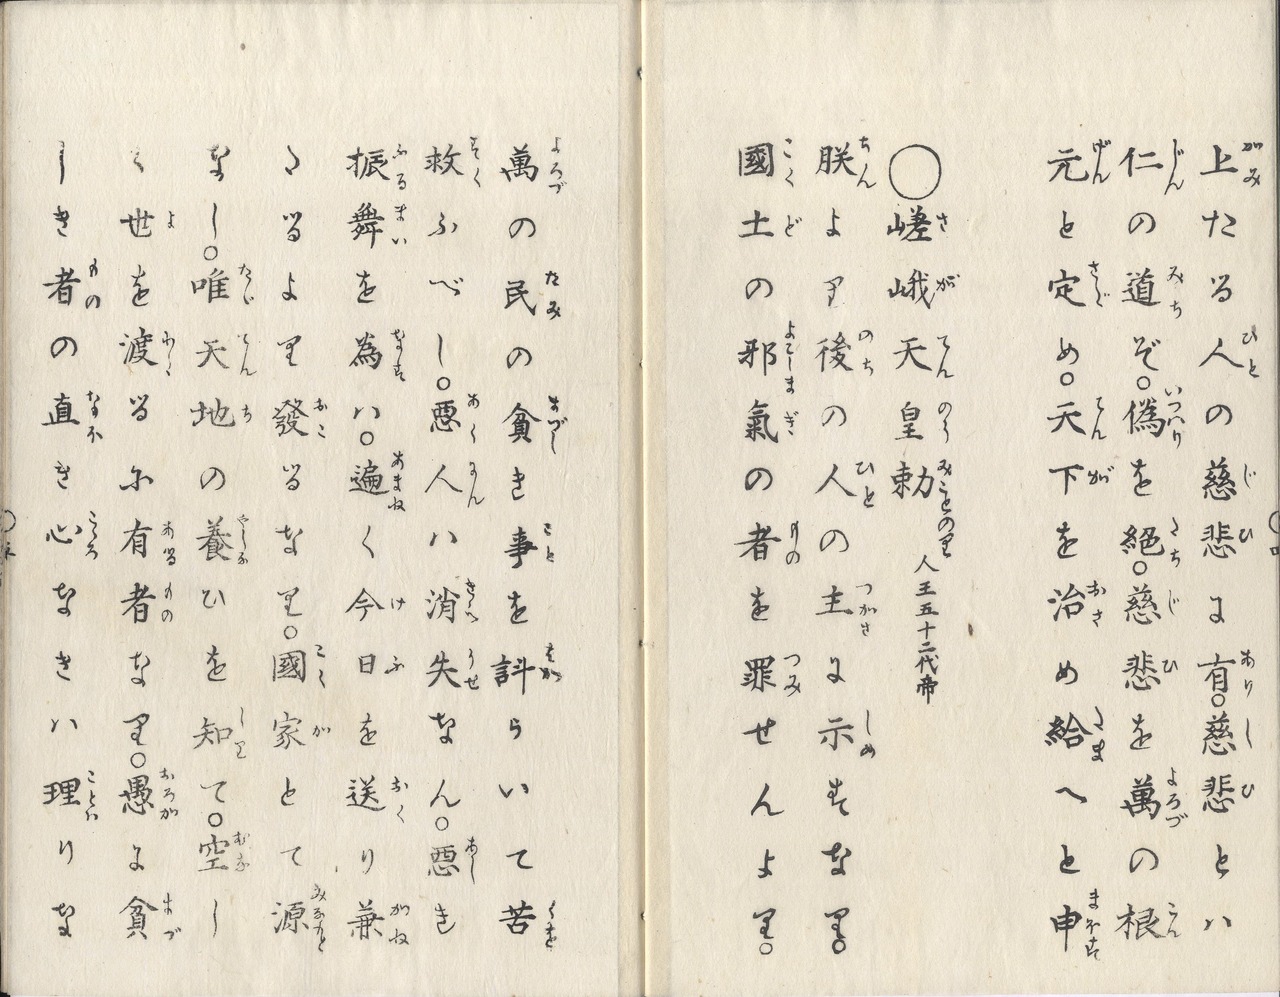 上たる人の慈悲に有。慈悲とハ
仁の道ぞ。偽を絶。慈悲を萬の根
元と定め。天下を治め給へと申
○嵯峨天皇勅 人王五十二代帝
朕より後の人の主に示すなり。
國土の邪氣の者を罪せんより。
萬の民の貧き事を計らいて苦
救ふべし。悪人ハ消失なん。悪き
振舞を為ハ。遍く今日を送り兼
たるより發るなり。國家とて源
なし。唯天地の養ひを知て。空し
く世を渡るに有者なり。愚に貧
しき者の直き心なきハ理りな